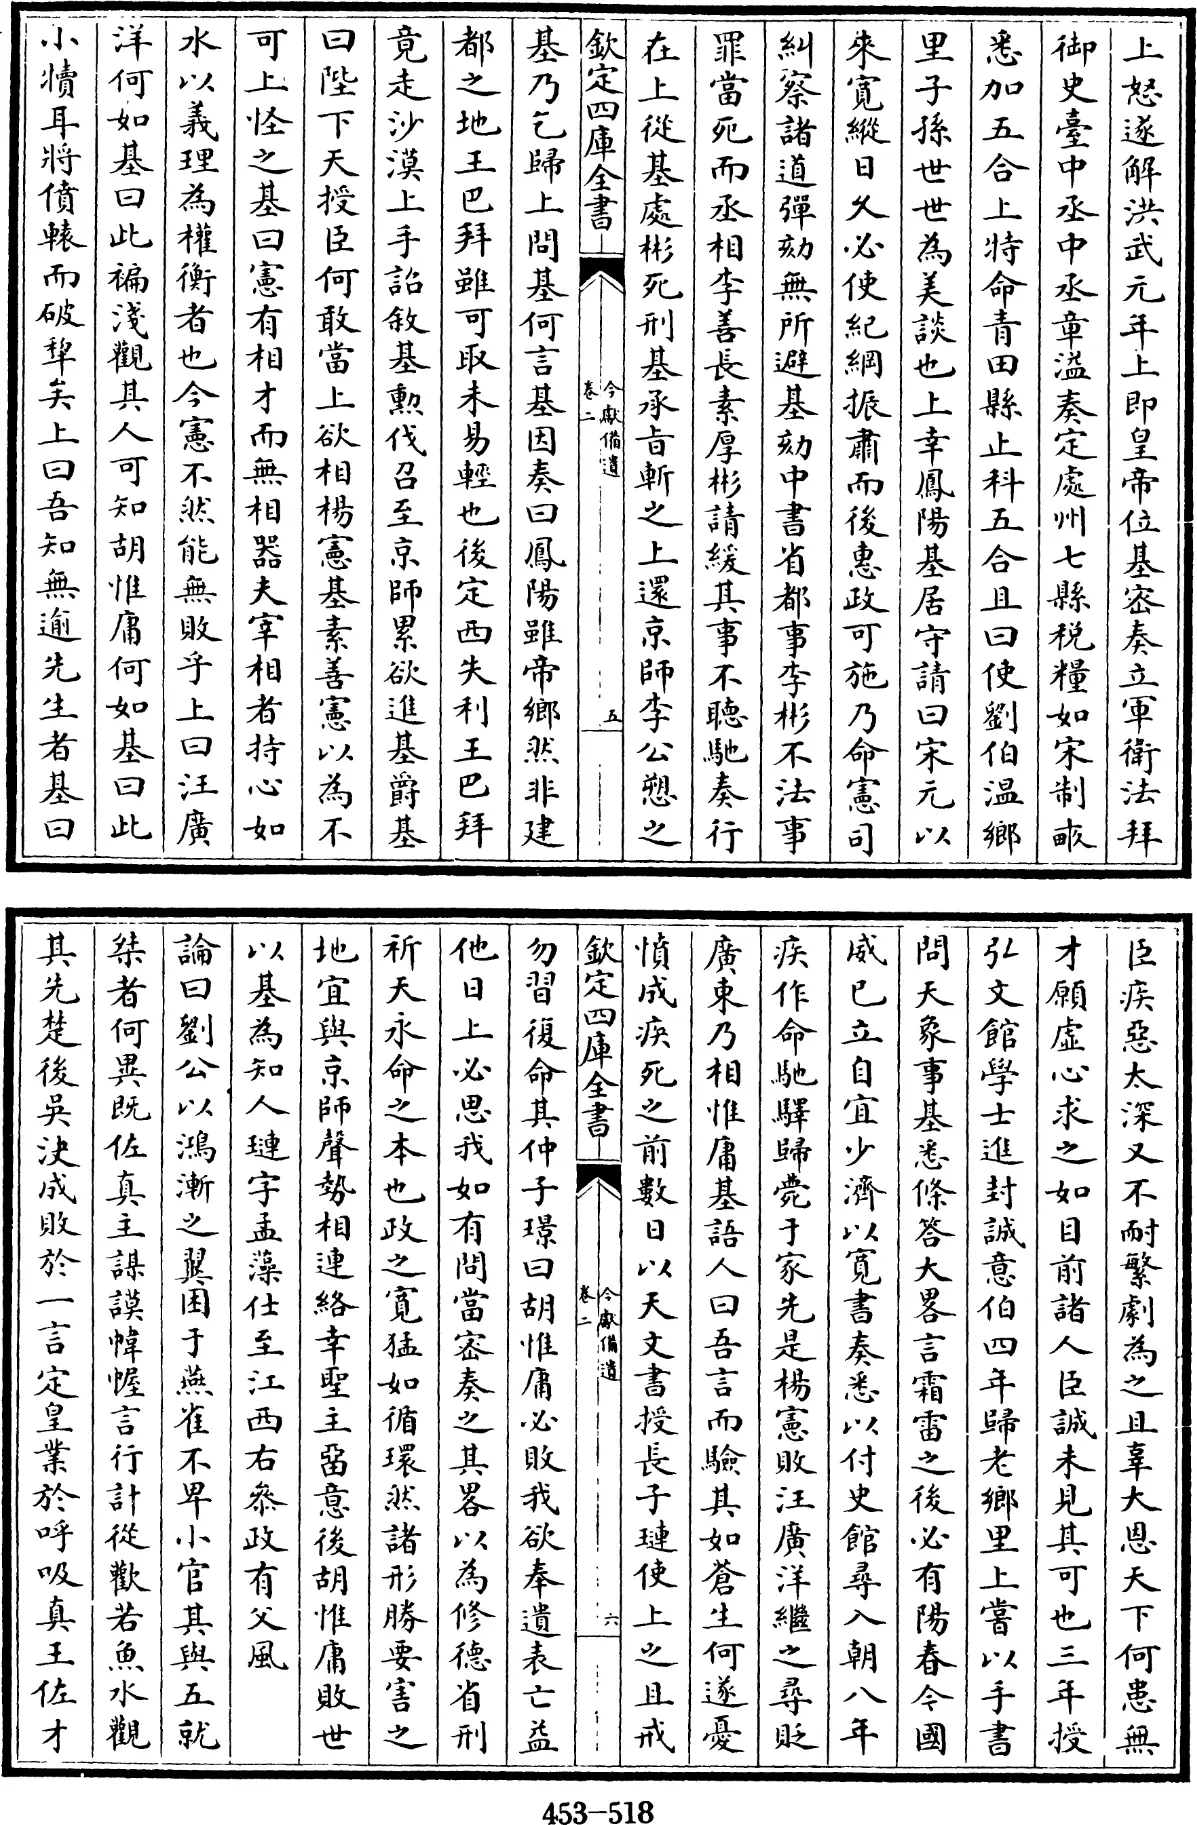 上怒遂解洪武元年上即皇帝位基密奏立軍衛法拜
御史臺中丞中丞章溢奏定處州七縣税糧如宋制畝
悉加五合上特命青田縣止科五合且曰使劉伯温鄉
里子孫世世為美談也上幸鳳陽基居守請曰宋元以
來寛縱日久必使紀綱振肅而後惠政可施乃命憲司
糾察諸道彈劾無所避基劾中書省都事李彬不法事
罪當死而丞相李善長素厚彬請緩其事不聽馳奏行
在上從基處彬死刑基承旨斬之上還京師李公愬之
欽定四庫全書
今獻備遺
卷二
五
基乃乞歸上問基何言基因奏曰鳳陽雖帝鄉然非建
都之地王巴拜雖可取未易輕也後定西失利王巴拜
竟走沙漠上手詔敘基勲伐召至京師累欲進基爵基
曰陛下天授臣何敢當上欲相楊憲基素善憲以為不
可上怪之基曰憲有相才而無相器夫宰相者持心如
水以義理為權衡者也今憲不然能無敗乎上曰汪廣
洋何如基曰此褊淺觀其人可知胡惟庸何如基曰此
小犢耳將僨轅而破犂矣上曰吾知無逾先生者基曰
臣疾惡太深又不耐繁劇為之且辜大恩天下何患無
才願虚心求之如目前諸人臣誠未見其可也三年授
弘文館學士進封誠意伯四年歸老鄉里上嘗以手書
問天象事基悉條答大畧言霜雷之後必有陽春今國
威已立自宜少濟以寛書奏悉以付史館尋入朝八年
疾作命馳驛歸薨于家先是楊憲敗汪廣洋繼之尋貶
廣東乃相惟庸基語人曰吾言而驗其如蒼生何遂憂
憤成疾死之前數日以天文書授長子璉使上之且戒
欽定四庫全書
今獻備遺
卷二
六
勿習復命其仲子璟曰胡惟庸必敗我欲奉遺表亡益
他日上必思我如有問當密奏之其畧以為修德省刑
祈天永命之本也政之寛猛如循環然諸形勝要害之
地宜與京師聲勢相連絡幸聖主留意後胡惟庸敗世
以基為知人璉字孟藻仕至江西右叅政有父風
論曰劉公以鴻漸之翼困于燕雀不卑小官其與五就
桀者何異既佐真主謀謨幃幄言行計從歡若魚水觀
其先楚後吳決成敗於一言定皇業於呼吸真王佐才
453-518